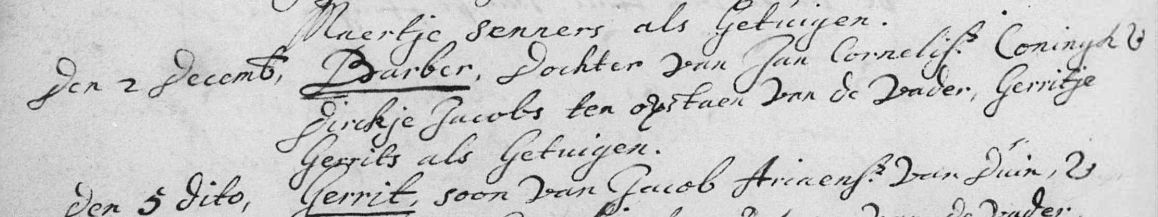 Maertje Senners als Getuigen.
den 2 Decemb, Barber, Dochter van Jan Cornelisz Coningh &
dirckje Jacobs ten opstaen van de vader, Gerritje
Gerrits als Getuigen.
den 5 dito, Gerrit, soon van Jacob Ariaensz van Duin, &
van de vader